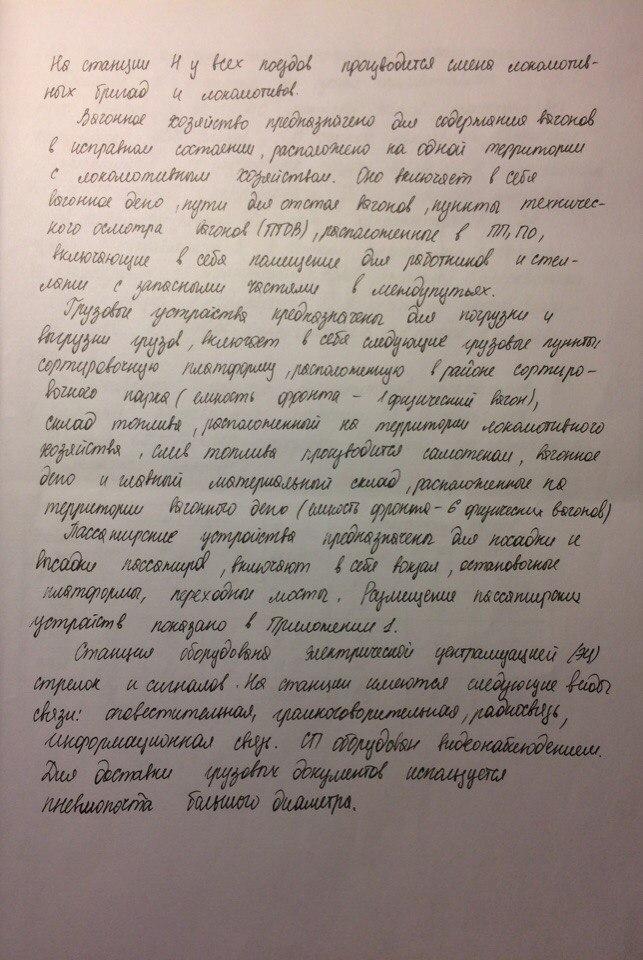 На станции Н у всех поездов производится смена локомотив-
ных бригад и локомотивов.
Вагонное хозяйство предназначено для содержания вагонов
в исправном состоянии, расположено на одной территории
с локомотивным хозяйством. Оно включает в себя
вагонное депо, пути для отстоя вагонов, пункты техничес-
кого осмотра вагонов (ПТОВ), расположенные в ПП, ПО,
включающие в себя помещение для работников и стел-
лажи с запасными частями в междупутьях.
Грузовые устройства предназначены для погрузки и
выгрузки грузов, включает в себя следующие грузовые пункты:
сортировочную платформу, расположенную в районе сортиро-
вочного парка (емкость фронта - 1 физический вагон),
склад топлива, расположенный на территории локомотивного
хозяйства, слив топлива производится самотеком, вагонное
депо и главный материальный склад, расположенные на
территории вагонного депо (емкость фронта - 6 физических вагонов)
Пассажирские устройства предназначены для посадки и
высадки пассажиров, включают в себя вокзал, остановочные
платформы, переходные мосты. Размещение пассажирских
устройств показано в Приложении 1.
Станция оборудована электрической централизацией (ЭЦ)
стрелок и сигналов. На станции имеются следующие виды
связи: оповестительная, громкоговорительная, радиосвязь,
информационная связь. СП оборудован видеонаблюдением.
Для доставки грузовых документов используется
пневмопочта большого диаметра.